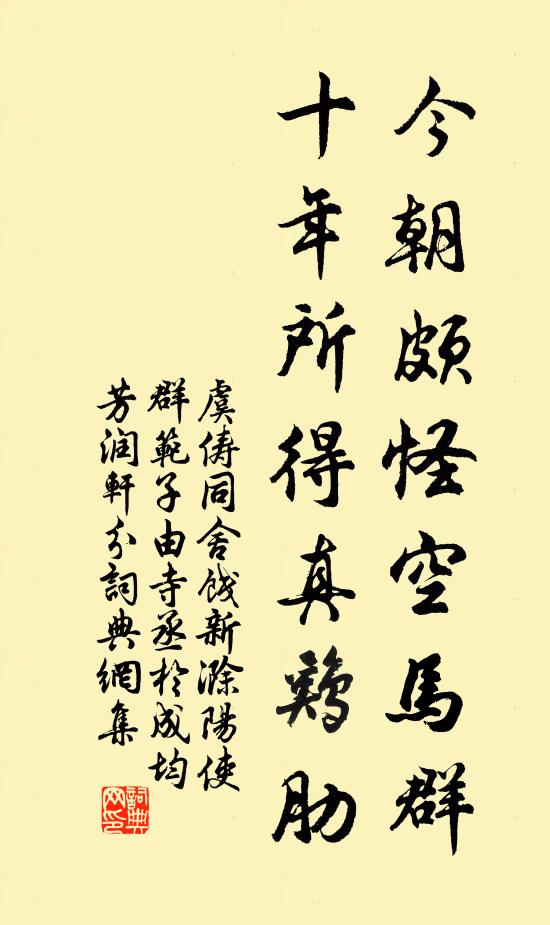 今朝頗怪空馬群
十年所得真鷄肋
虞儔同舍餞新滁陽使
群範子由寺丞於成均
芳润軒分詞典網集
詞典网印